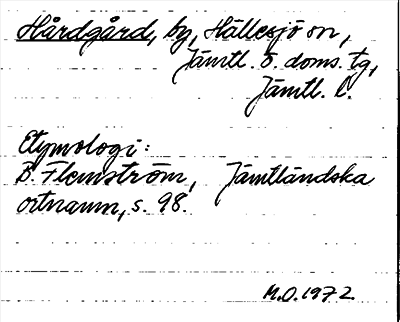 Hårdgård, by, Hällesjö sn,
Jämtl. ö. doms. tg,
Jämtl. l.
Etymologi:
B. Flemström, Jämtländska
ortnamn, s. 98.
M.O. 1972